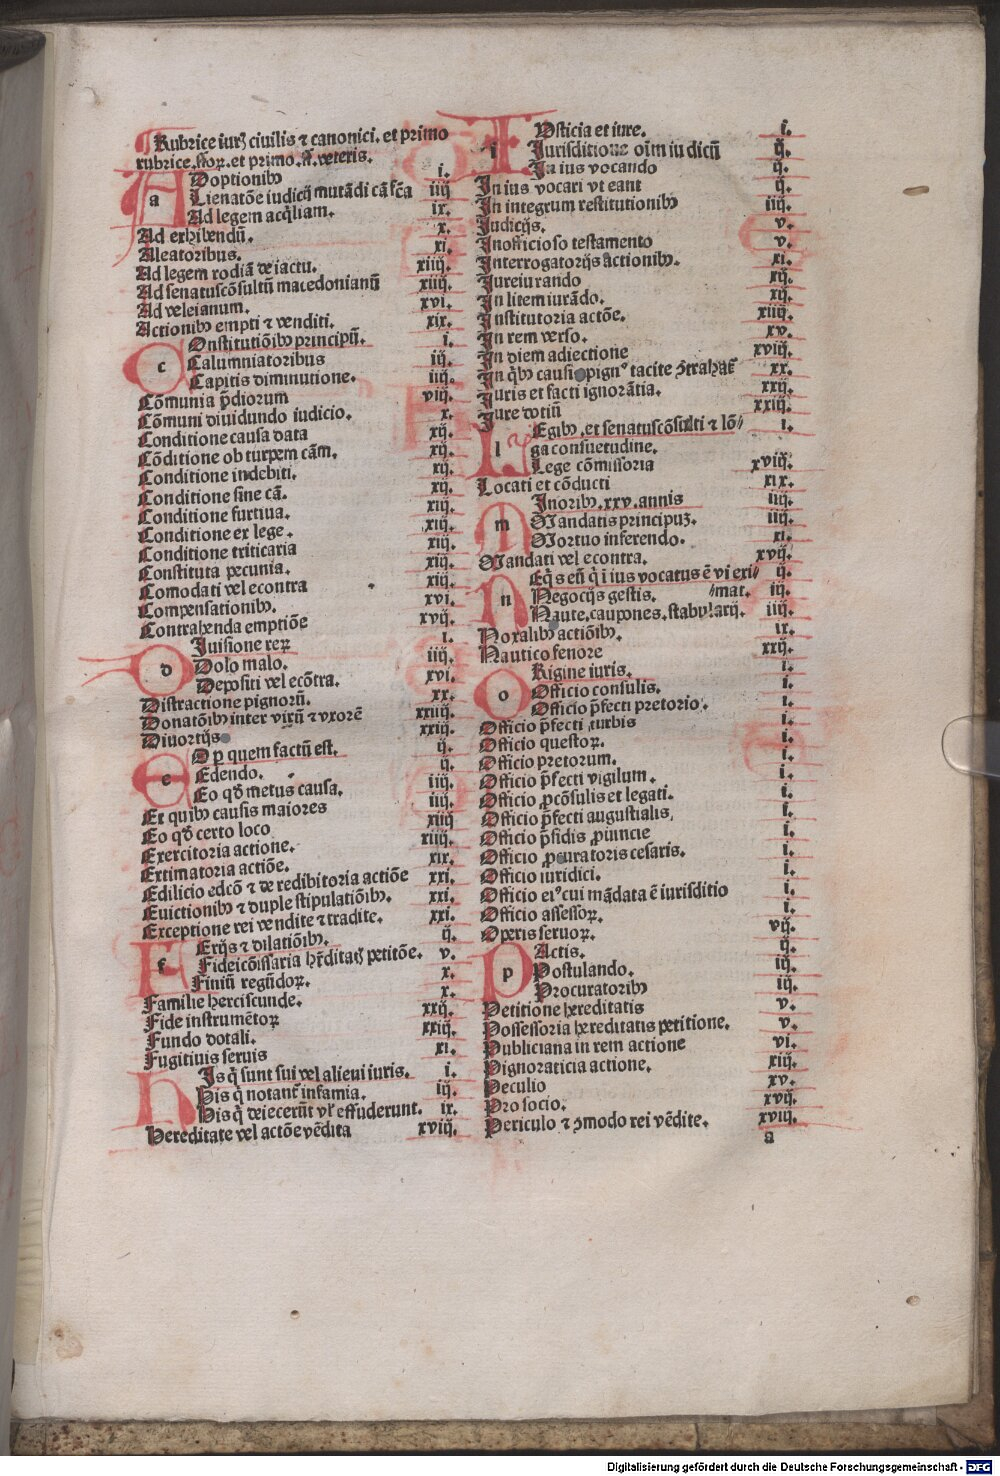 Rubrice iurꝭ ciuilis ⁊ canonici. et primo
rubrice. ffoꝝ. et primo. ff. veteris.
a Doptionibꝰ i.
Lienatōe iudicij mutādi cā fc̄a iiij
Ad legem acq̄liam. ix.
Ad exhibendū. x.
Aleatoribus. xi.
Ad legem rodiā de iactu. xiiij.
Ad senatuscōsultū macedonianū xiiij.
Ad veleianum. xvi.
Actionibꝰ empti ⁊ venditi. xix.
c Onstitutiōibꝰ principū. i.
Calumniatoribus iij.
Capitis diminutione. iiij.
Cōmunia p̄diorum viij.
Cōmuni diuidundo iudicio. x.
Conditione causa data xij.
Cōditione ob turpem cām. xij.
Conditione indebiti. xij.
Conditione sine cā. xij.
Conditione furtiua. xiij.
Conditione ex lege. xiij.
Conditione triticaria xiij.
Constituta pecunia. xiij.
Comodati vel econtra xiij.
Compensationibꝰ. xvi.
Contrahenda emptiōe xvij.
d Iuisione reꝝ i.
Dolo malo. iiij.
Depositi vel ecōtra. xvi.
Distractione pignorū. xx.
Donatōibꝰ inter virū ⁊ vxorē xxiiij.
Diuortijs xxiij.
e O ꝑ quem factū est. ij.
Edendo. ij.
Eo qđ metus causa. iiij.
Ex quibꝰ causis maiores iiij.
Eo qđ certo loco xiij
Exercitoria actione. xiiij.
Extimatoria actiōe. xix.
Edilicio edcō ⁊ de redibitoria actiōe xxi.
Euictionibꝰ ⁊ duple stipulatiōibꝰ. xxi.
Exceptione rei vendite ⁊ tradite. xxi.
f Erijs ⁊ dilatiōibꝰ. ij.
Fideicōissaria hr̄ditatꝭ petitōe. v.
Finiū regūdoꝝ. x.
Familie herciscunde. x.
Fide instrumētoꝝ xxij.
Fundo dotali. xxiij.
Fugitiuis seruis xi.
h Is q̄ sunt sui vel alieni iuris. i.
His q̄ notant̄ infamia. iij.
His q̄ deiecerūt vl̓ effuderunt. ix.
Hereditate vel actōe vēdita xviij.
i Vsticia et iure. i.
Iurisditione oīm iudicū ij.
In ius vocando ij.
In ius vocari vt eant ij.
In integrum restitutionibꝰ iiij.
Iudicijs. v.
Inofficioso testamento v.
Interrogatorijs actionibꝰ. xi.
Iureiurando xij.
In litem iurādo. xij.
Institutoria actōe. xiiij.
In rem verso. xv.
In diem adiectione xviij.
In q̄bꝰ causis pignꝰ tacite ꝯtrahat̄ xx.
Iuris et facti ignorātia. xxij.
Iure dotiū xxiij.
l Egibꝰ. et senatuscōsulti ⁊ lō/ i.
ga consuetudine.
Lege cōmissoria xviij.
Locati et cōducti xix.
m Inoribꝰ. xxv. annis iiij.
Mandatis principuꝫ. iiij.
Mortuo inferendo. xi.
Mandati vel econtra. xvij.
n Eq̄s eū q̄ ī ius vocatus ē vi exi// ij.
Negocijs gestis. //mat. iij.
Naute. caupones. stabularij. iiij.
Noxalibꝰ actiōibꝰ. ix.
Nautico fenore xxij.
o Rigine iuris. i.
Officio consulis. i.
Officio p̄fecti pretorio. i.
Officio p̄fecti vrbis i.
Officio questoꝝ. i.
Officio pretorum. i.
Officio p̄fecti vigilum. i.
Officio ꝓcōsulis et legati. i.
Officio p̄fecti augustialis, i.
Officio p̄sidis ꝓuincie i.
Officio ꝓcuratoris cesaris. i.
Officio iuridici. i.
Officio eiꝰ cui mādata ē iurisditio i.
Officio assessoꝝ. i.
Operis seruoꝝ. vij.
p Actis. ij.
Postulando. iij.
Procuratoribꝰ iij.
Petitione hereditatis v.
Possessoria hereditatis petitione. v.
Publiciana in rem actione vi.
Pignoraticia actione. xiij.
Peculio xv.
Pro socio. xvij.
Periculo ⁊ ꝯmodo rei vēdite. xviij.
a
Digitalisierung gefördert durch die Deutsche Forschungsgemeinschaft - DFG